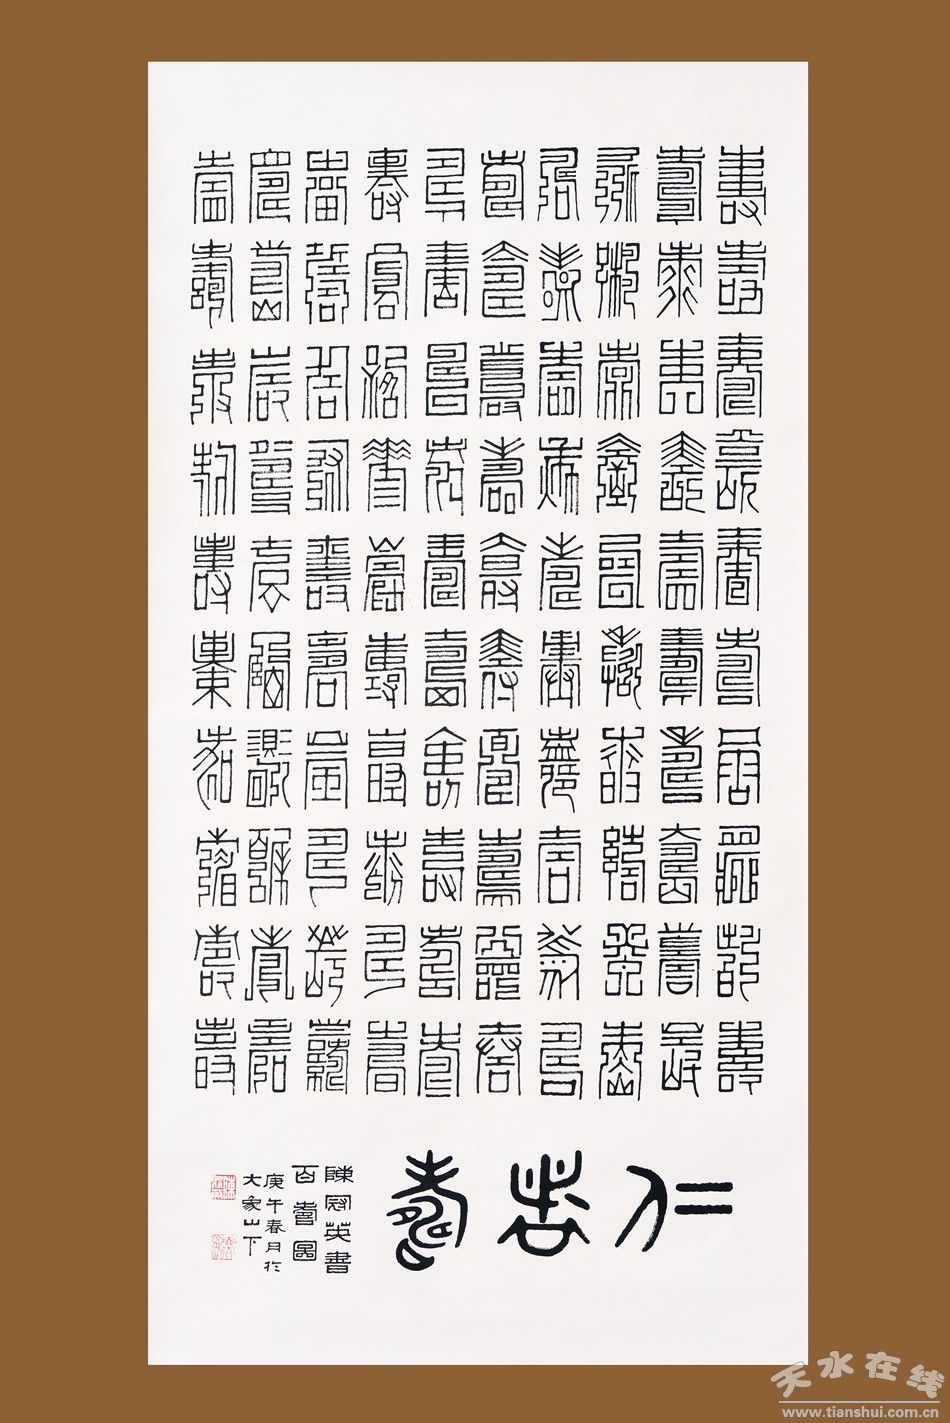 壽壽壽壽壽壽壽壽壽壽
壽壽壽壽壽壽壽壽壽壽
壽壽壽壽壽壽壽壽壽壽
壽壽壽壽壽壽壽壽壽壽
壽壽壽壽壽壽壽壽壽壽
壽壽壽壽壽壽壽壽壽壽
壽壽壽壽壽壽壽壽壽壽
壽壽壽壽壽壽壽壽壽壽
壽壽壽壽壽壽壽壽壽壽
壽壽壽壽壽壽壽壽壽壽
仁者壽
陳冠英書
百壽圖
庚午春月於
大象山下
天水在线
www.tianshui.com.cn